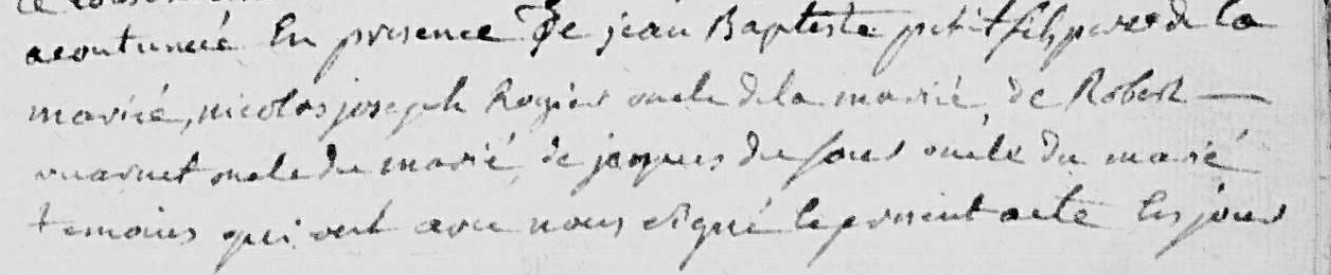 acoutumée En presence De jean Baptiste petit fils pere de la
mariée, nicolas joseph Rogier oncle de la marié, de Robert
oncle du marié, de jaques du four oncle du marié
temoins qui ont avec nous signé le present acte les jour